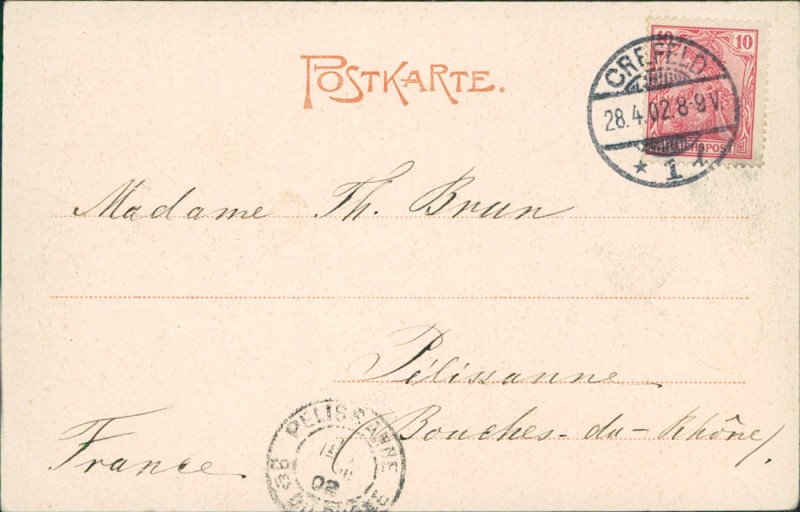 POSTKARTE.
10
REICHSPOST
CREFELD
28.4.02.8-9V.
* 1 i.
Madame Th. Brun
Pélissanne
Bouches-du-Rhône
France
PELISSANNE
02